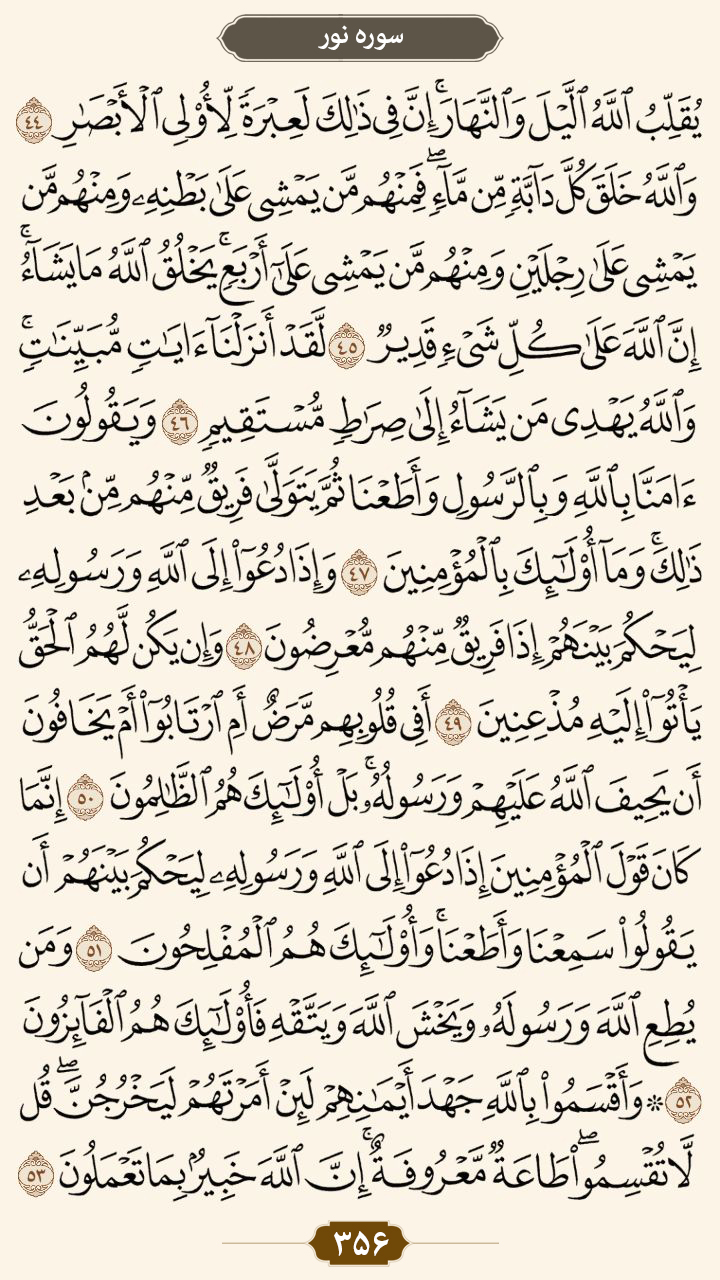 سوره نور
يُقَلِّبُ ٱللَّهُ ٱلَّيْلَ وَٱلنَّهَارَۚ إِنَّ فِى ذَٰلِكَ لَعِبْرَةً لِّأُو۟لِى ٱلْأَبْصَٰرِ ٤٤
وَٱللَّهُ خَلَقَ كُلَّ دَآبَّةٍ مِّن مَّآءٍۖ فَمِنْهُم مَّن يَمْشِى عَلَىٰ بَطْنِهِۦ وَمِنْهُم مَّن
يَمْشِى عَلَىٰ رِجْلَيْنِ وَمِنْهُم مَّن يَمْشِى عَلَىٰٓ أَرْبَعٍۚ يَخْلُقُ ٱللَّهُ مَا يَشَآءُۚ
إِنَّ ٱللَّهَ عَلَىٰ كُلِّ شَىْءٍ قَدِيرٌ ٤٥ لَّقَدْ أَنزَلْنَآ ءَايَٰتٍ مُّبَيِّنَٰتٍۚ
وَٱللَّهُ يَهْدِى مَن يَشَآءُ إِلَىٰ صِرَٰطٍ مُّسْتَقِيمٍ ٤٦ وَيَقُولُونَ
ءَامَنَّا بِٱللَّهِ وَبِٱلرَّسُولِ وَأَطَعْنَا ثُمَّ يَتَوَلَّىٰ فَرِيقٌ مِّنْهُم مِّنۢ بَعْدِ
ذَٰلِكَۚ وَمَآ أُو۟لَٰٓئِكَ بِٱلْمُؤْمِنِينَ ٤٧ وَإِذَا دُعُوٓا۟ إِلَى ٱللَّهِ وَرَسُولِهِۦ
لِيَحْكُمَ بَيْنَهُمْ إِذَا فَرِيقٌ مِّنْهُم مُّعْرِضُونَ ٤٨ وَإِن يَكُن لَّهُمُ ٱلْحَقُّ
يَأْتُوٓا۟ إِلَيْهِ مُذْعِنِينَ ٤٩ أَفِى قُلُوبِهِم مَّرَضٌ أَمِ ٱرْتَابُوٓا۟ أَمْ يَخَافُونَ
أَن يَحِيفَ ٱللَّهُ عَلَيْهِمْ وَرَسُولُهُۥۚ بَلْ أُو۟لَٰٓئِكَ هُمُ ٱلظَّٰلِمُونَ ٥٠ إِنَّمَا
كَانَ قَوْلَ ٱلْمُؤْمِنِينَ إِذَا دُعُوٓا۟ إِلَى ٱللَّهِ وَرَسُولِهِۦ لِيَحْكُمَ بَيْنَهُمْ أَن
يَقُولُوا۟ سَمِعْنَا وَأَطَعْنَاۚ وَأُو۟لَٰٓئِكَ هُمُ ٱلْمُفْلِحُونَ ٥١ وَمَن
يُطِعِ ٱللَّهَ وَرَسُولَهُۥ وَيَخْشَ ٱللَّهَ وَيَتَّقْهِ فَأُو۟لَٰٓئِكَ هُمُ ٱلْفَآئِزُونَ
٥٢ ۞ وَأَقْسَمُوا۟ بِٱللَّهِ جَهْدَ أَيْمَٰنِهِمْ لَئِنْ أَمَرْتَهُمْ لَيَخْرُجُنَّۖ قُل
لَّا تُقْسِمُوا۟ۖ طَاعَةٌ مَّعْرُوفَةٌۚ إِنَّ ٱللَّهَ خَبِيرٌۢ بِمَا تَعْمَلُونَ ٥٣
۳۵۶